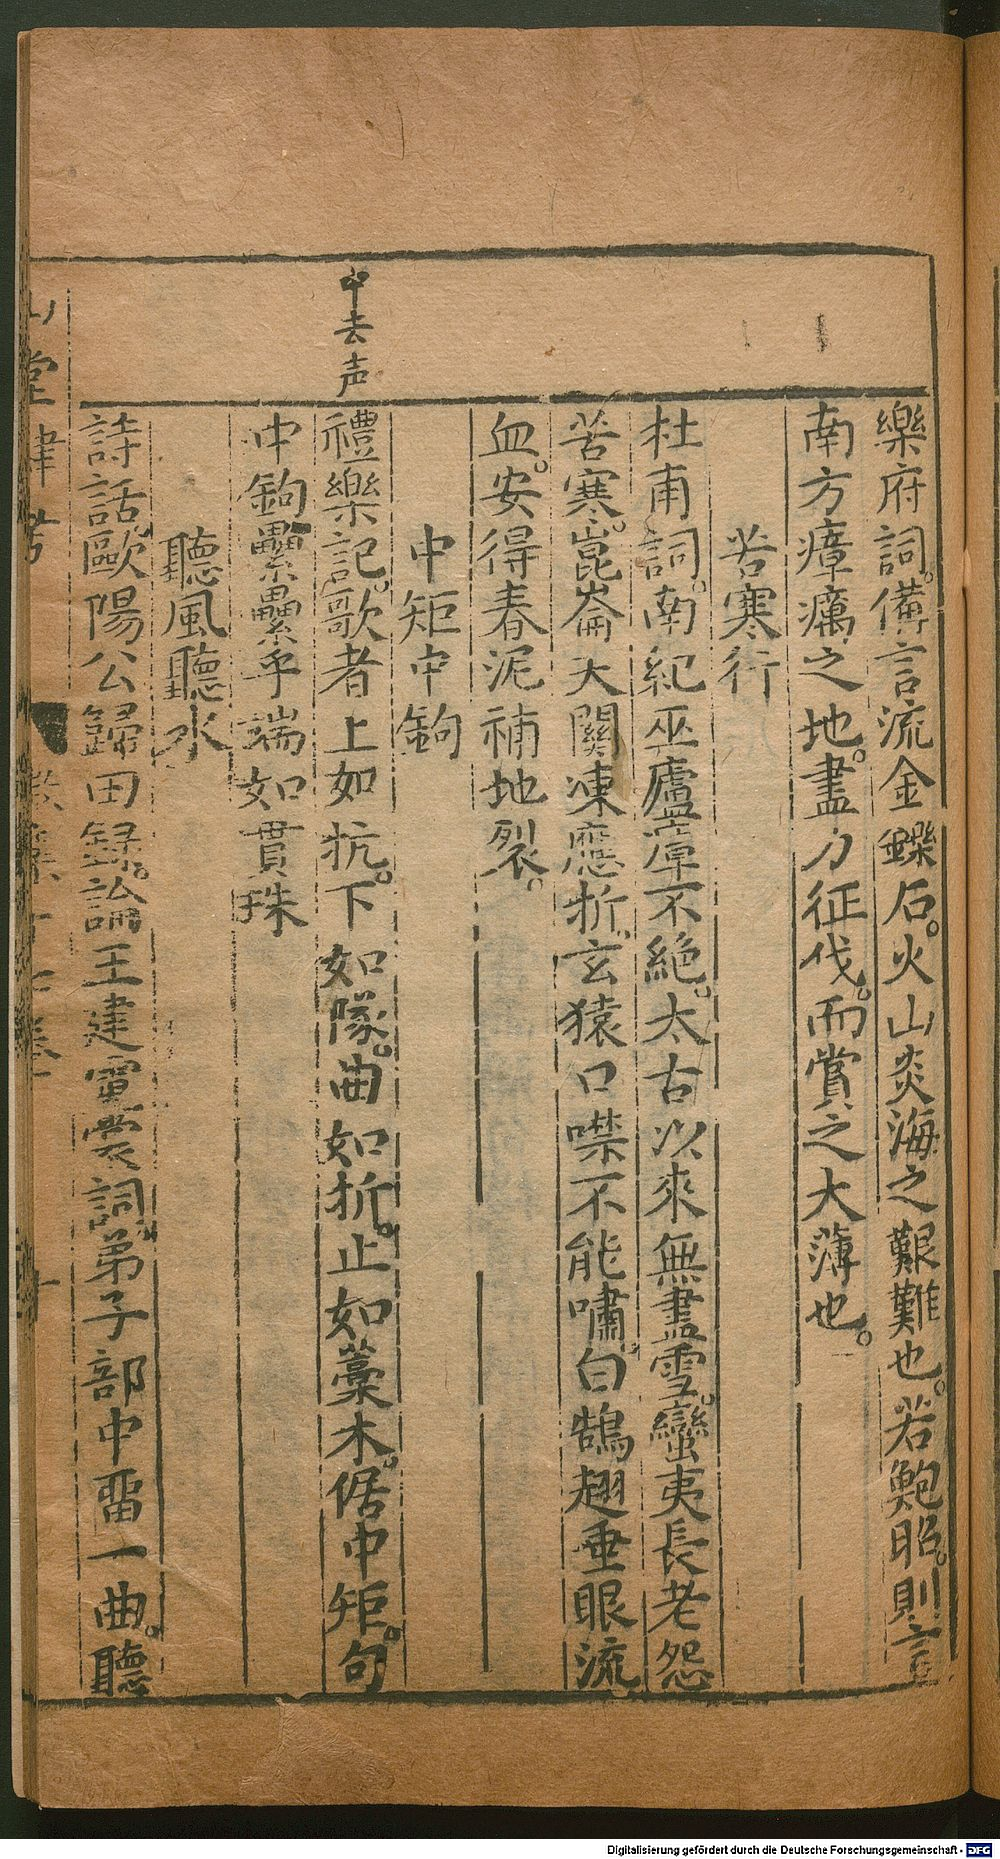 樂府詞。備言流金鑠石。火山炎海之艱難也。若鮑昭。則言
南方瘴癘之地。盡力征伐。而賞之大薄也。
苦寒行
杜甫詞。南紀巫廬瘴不絕。太古以來無盡雪。蠻夷長老怨
苦寒。崑崙天關凍應折。玄猿口噤不能嘯。白鵠翅垂眼流
血。安得春泥補地裂。
中矩中鉤
中去声
禮樂記。歌者上如抗。下如隊。曲如折。止如藁木。倨中矩。句
中鉤纍纍乎端如貫珠
聽風聽水
詩話歐陽公歸田録。論王建霓裳詞。弟子部中畱一曲。聽
山堂肆考
Digitalisierung gefördert durch die Deutsche Forschungsgemeinschaft - DFG